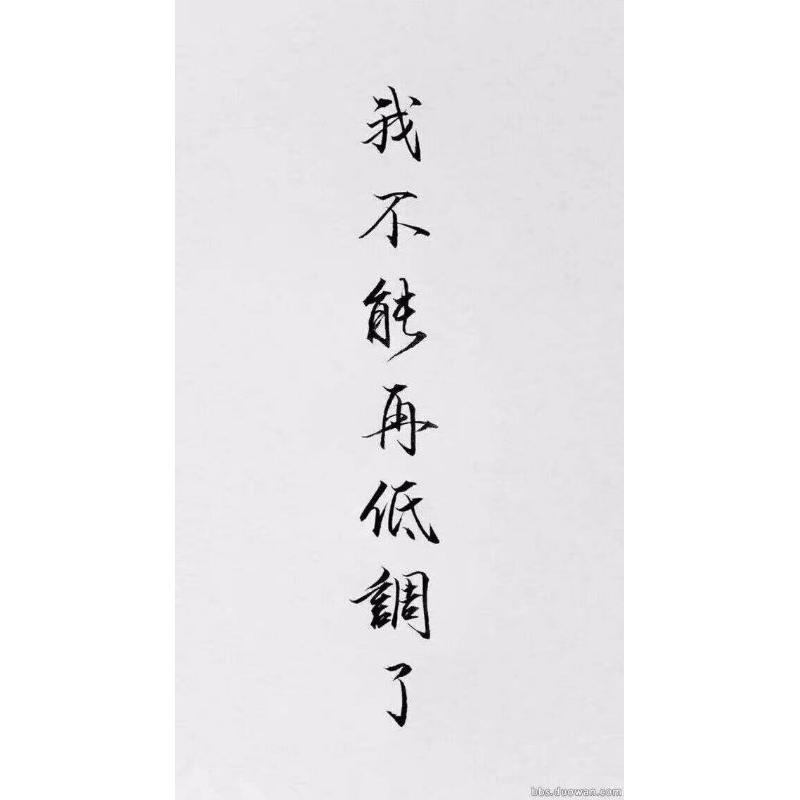 我不能再低調了
bbs.duowan.com